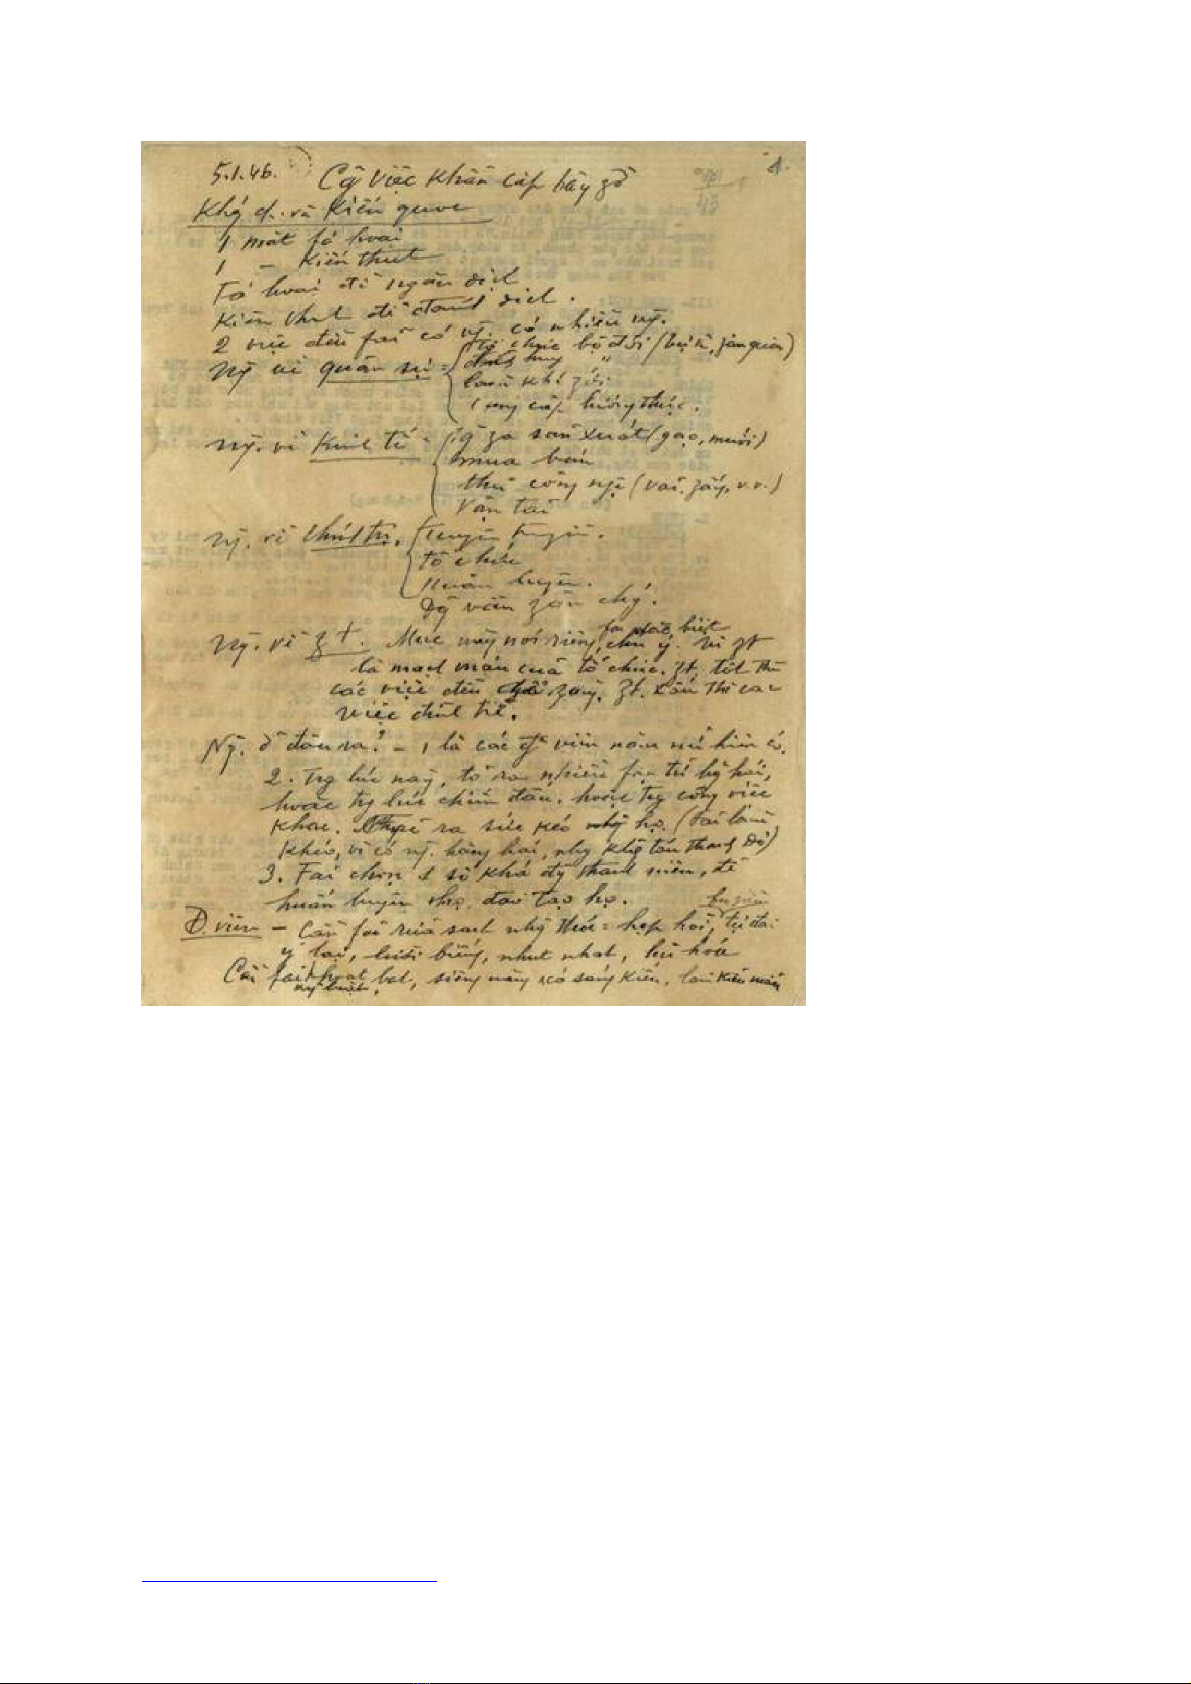 5.1.46. Cg việc khẩn cấp bây zờ 1.
43
Khg ch.. và Kiến quốc
1 mặt fá hoại
1 – Kiến thiết
Fá hoại để ngăn địch
Kiến thiết để đánh địch.
2 việc đều fải có ng. có nhiều ng.
Ng về quân sự = tổ chức bộ đội (bộ đ, zân quân)
chỉ huy "
làm khí zới
cung cấp lương thực.
Ng. về Kinh tế = tăg za sản xuất (gạo, muối)
mua bán
thủ công ngệ (vải, zấy, v.v.)
Vận tải
Ng. về chính trị, tuyên truyền.
tổ chức
Huấn luyện.
Độg viên zân chúg.
fải đặc biệt
Ng. về zt. Mục này nói riêng, chú ý. vì zt
là mạch máu của tổ chức. zt. tốt thì
các việc đều zàng. zt. xấu thì các
việc đình trệ.
Ng. ở đâu ra? – 1 là các đg viên năm nữ hiện có.
2. Trg lúc này, tỏ ra nhiều fần tử hg hái,
hoặc trg lúc chiến đấu, hoặc trg công việc
khác. ra sức kéo họ. (Fải làm
khéo, vì có ng. hăng hái, nhg khôg tán thành Đg)
3. Fải chọn 1 số khá đg thanh niên, để
huấn luyện họ, đào tạo họ.
Đ. viên – Cần fải rửa sạch nhg thói = hẹp hòi, tự đại
ỷ lại, lười biếng, nhút nhát, hủ hóa
Cần fải hoạt bát, siêng năng, có sáng kiến, làm kiểu mẫu